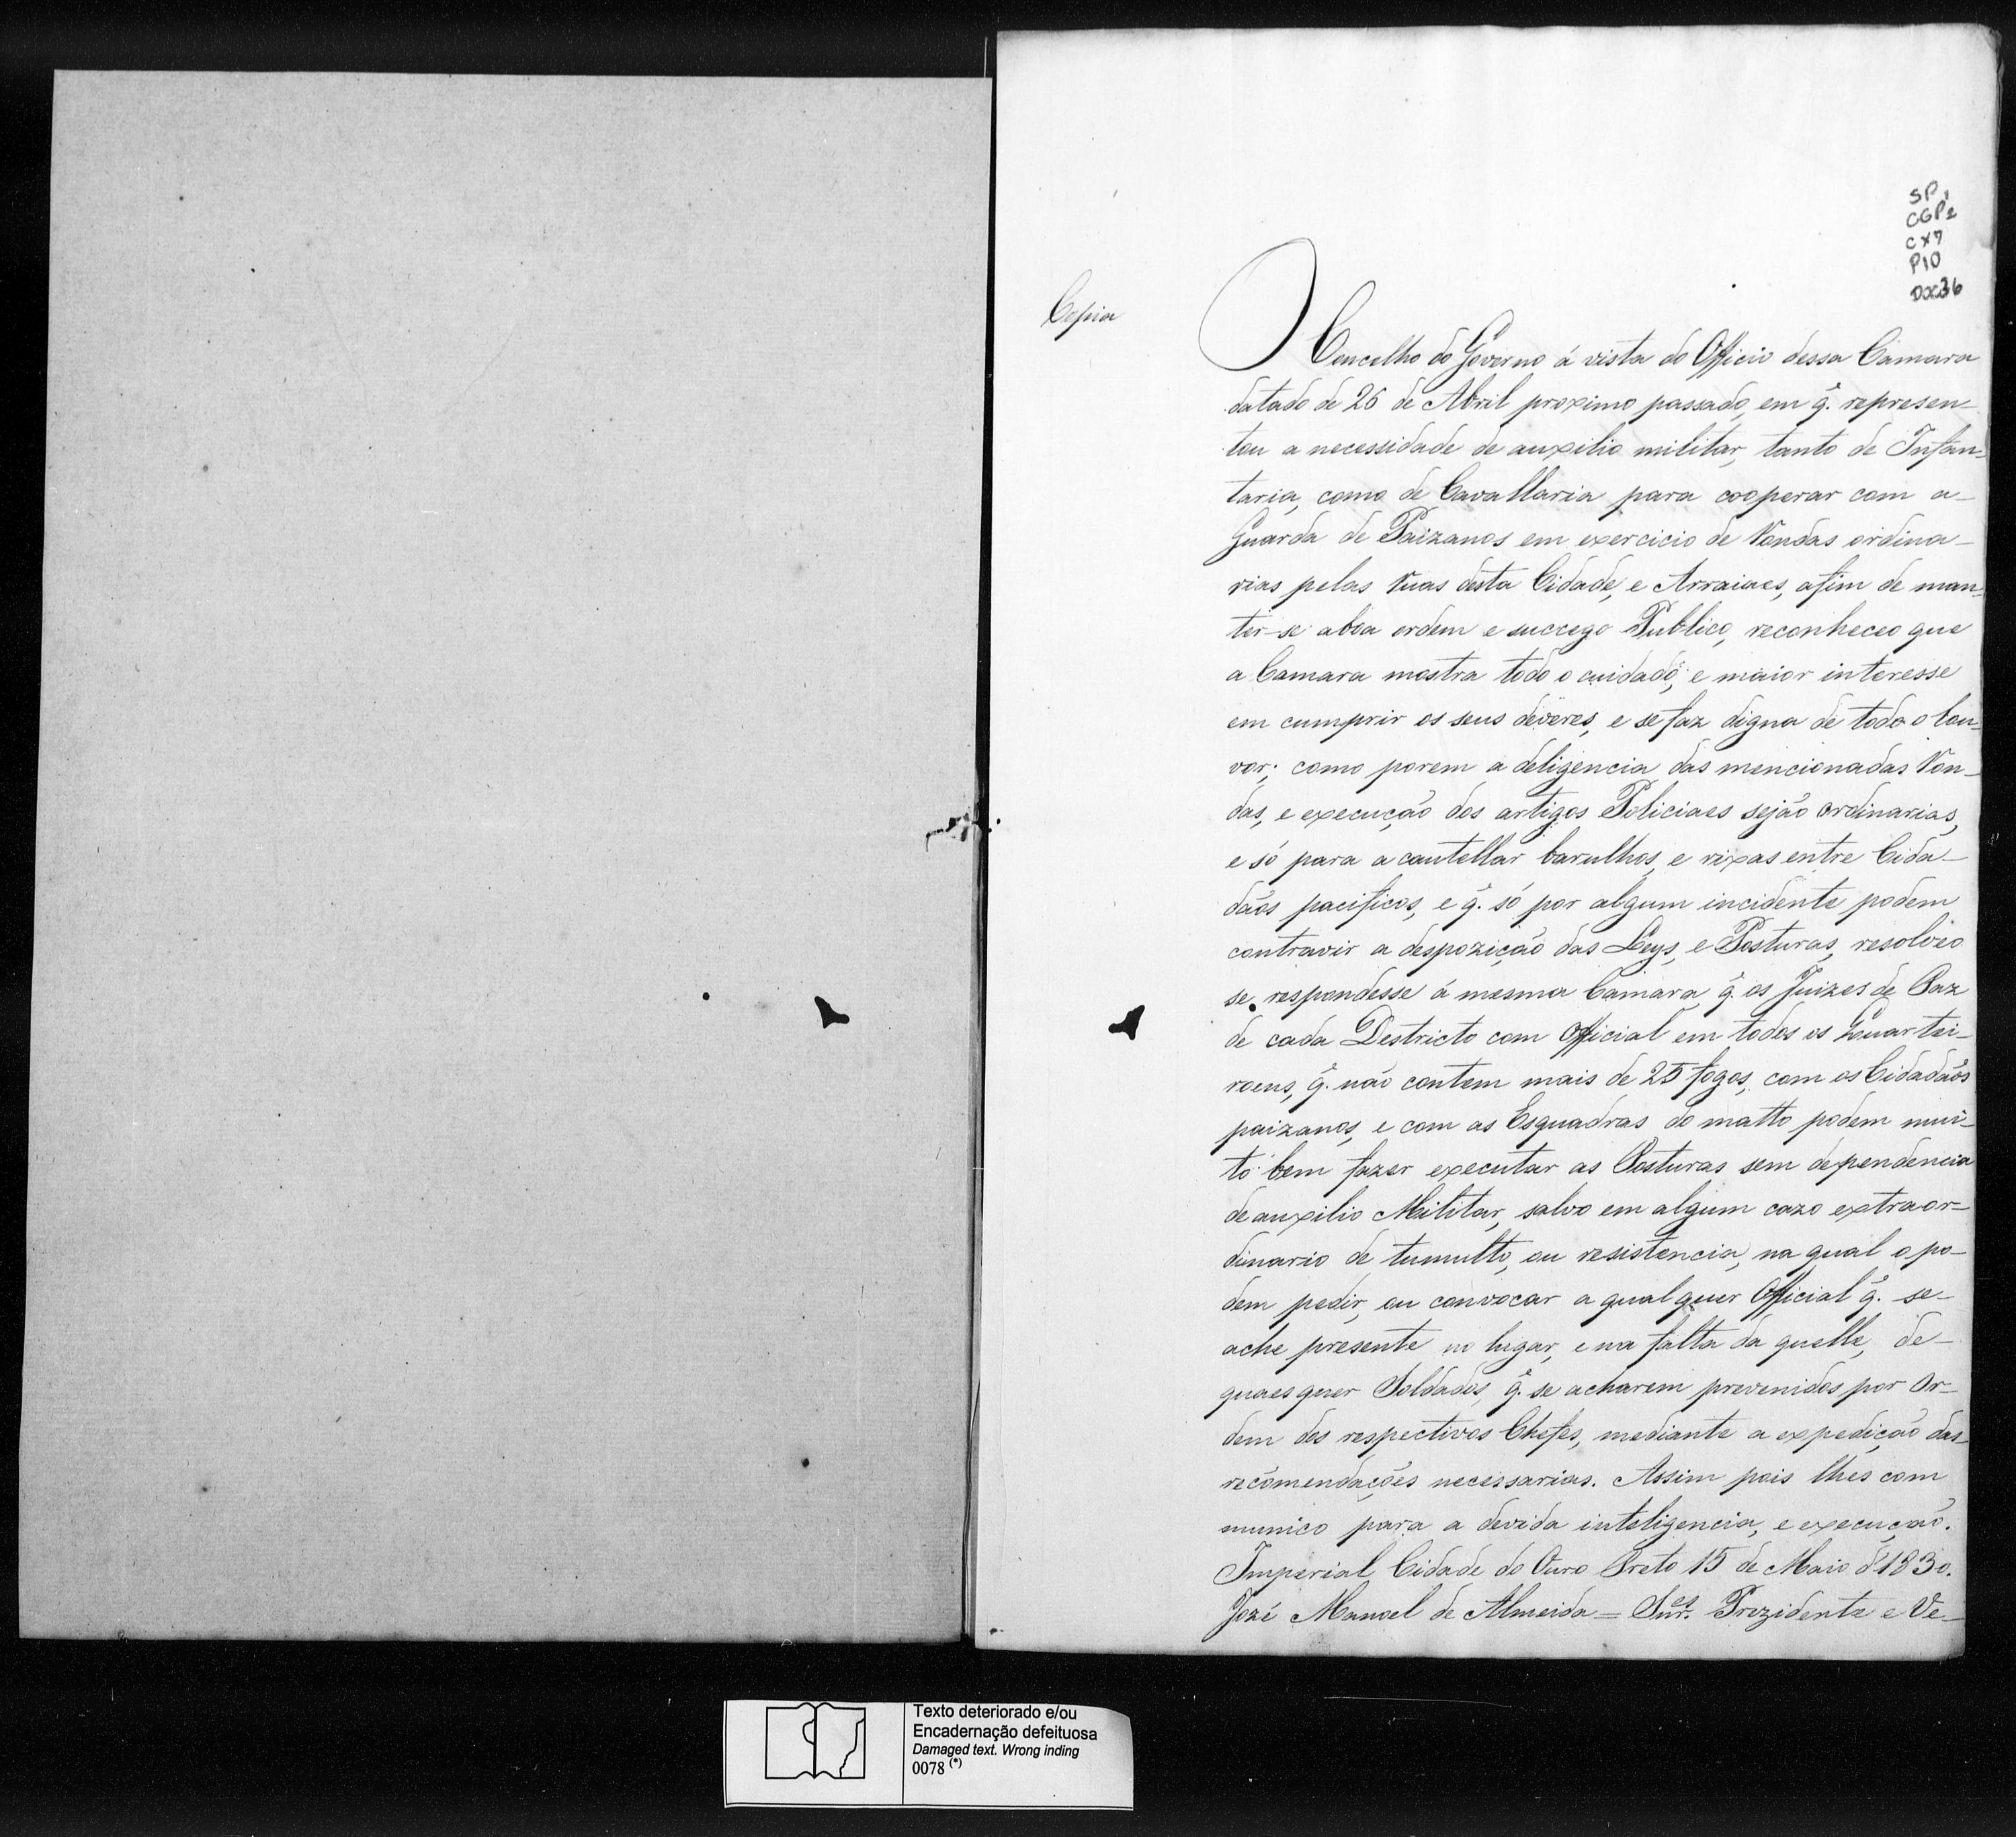 SP1
CGP2
CX7
P10
Doc36
Copia
O Concelho do Governo á vista do Officio dessa Camara
datado de 26 de Abril proximo passado, em q̃. represen-
tou a necessidade de auxilio militar, tanto de Infan-
taria, como de Cavallaria para cooperar com a-
Guarda de Paizanos em exercicio de Rondas ordina-
rias pelas Ruas desta Cidade, e Arraiaes, afim de man-
ter-se aboa ordem e succego Publico, reconheceo que
a Camara mostra todo o cuidado, e maior interesse
em cumprir os seus deveres, e se faz digna de todo o lou-
vor; como porem a deligencia das mencionadas Ron-
das, e execução dos artigos Policiaes sejão ordinarias,
e só para a cautellar barulhos, e rixas entre Cida-
dãos pacificos, e q̃. só por algum incidente podem
contravir a despozição das Leys, e Posturas, resolveo
se respondesse á mesma Camara q̃. os Juizes de Paz
de cada Destricto com Official em todos os Quartei-
roens, q̃. não contem mais de 25 fogos, com os Cidadãos
paizanos, e com as Esquadras do matto podem mui-
to bem fazer executar as Posturas sem dependencia
de auxilio Militar, salvo em algum cazo extraor-
dinario de tumulto, ou resistencia, na qual o po-
dem pedir, ou convocar a qual quer Official q̃. se-
ache presente no lugar, e na falta da quelle, de-
quaes quer Soldados, q̃. se acharem prevenidos por Or-
dem dos respectivos Chefes, mediante a expedição das
recomendações necessarias. Assim pois lhes com
munico para a devida inteligencia, e execução.
Imperial Cidade do Ouro Preto 15 de Maio d'1830.
Jozé Manoel de Almeida = Snr.es Prezidente e Ve-
Texto deteriorado e/ou
Encadernação defeituosa
Damaged text. Wrong inding
0078 (*)